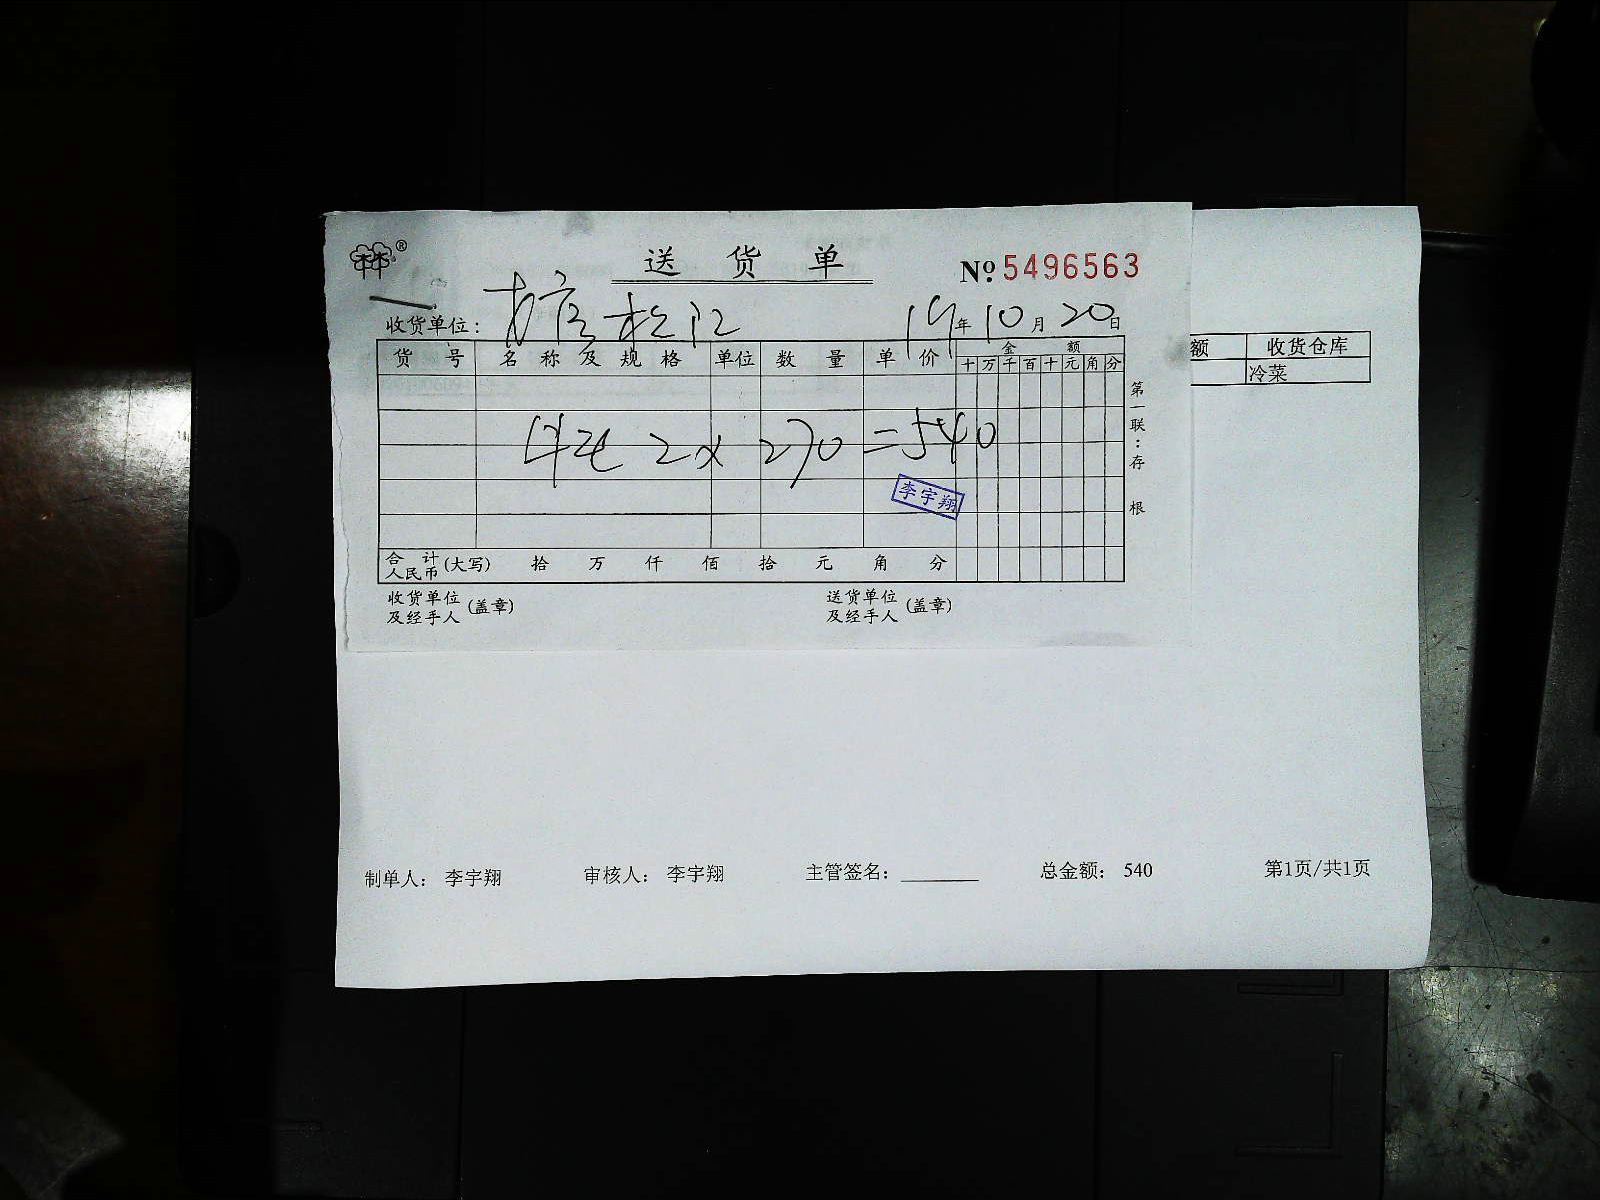 林®
送货单
No 5496563
收货单位: 19年10月20日
货号 名称及规格 单位 数量 单价 金额
十万千百十元角分
2× 270 =540
李宇翔
合计人民币(大写) 拾 万 仟 佰 拾 元 角 分
收货单位及经手人(盖章) 送货单位及经手人(盖章)
第一联:存根
额 收货仓库
冷菜
制单人: 李宇翔 审核人: 李宇翔 主管签名: 总金额: 540 第1页/共1页